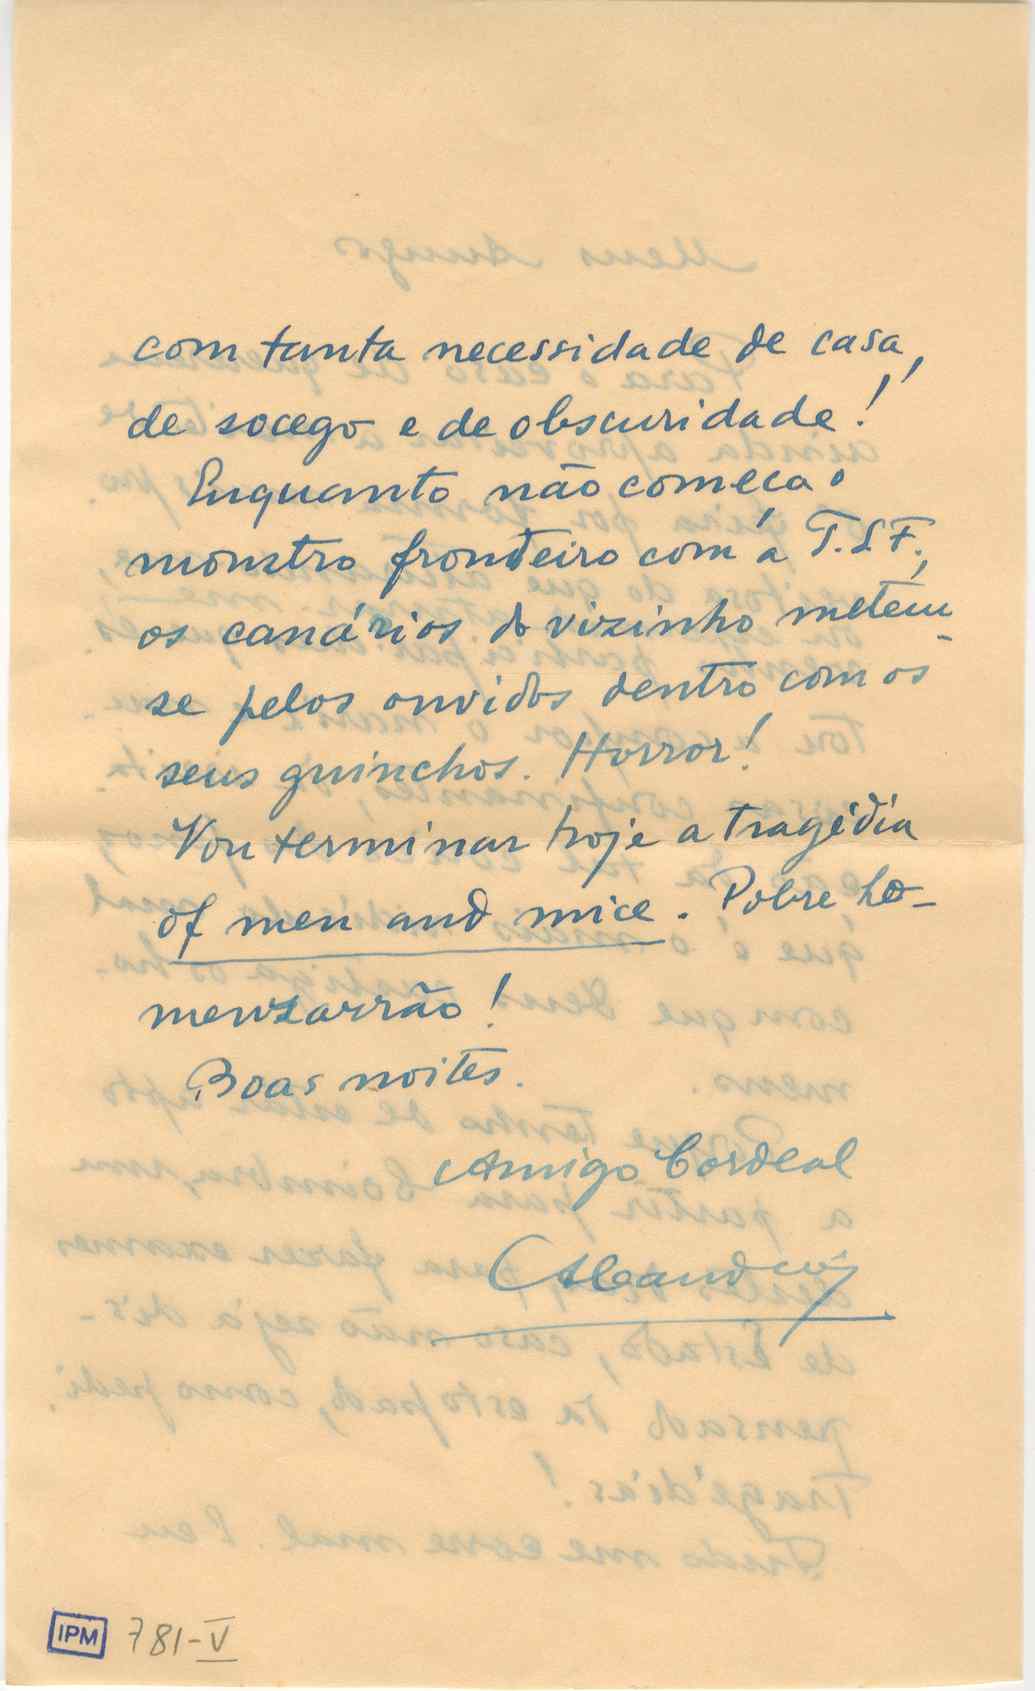 com tanta necessidade de casa,
de socego e de obscuridade!
Enquanto não começa o
monstro fronteiro com a T.S.F.,
os canários do vizinho metem-
se pelos ouvidos dentro com os
seus guinchos. Horror!
Vou terminar hoje a tragédia
of men and mice. Pobre ho-
menzarrão!
Boas noites.
Amigo Cordeal
IPM 781-V